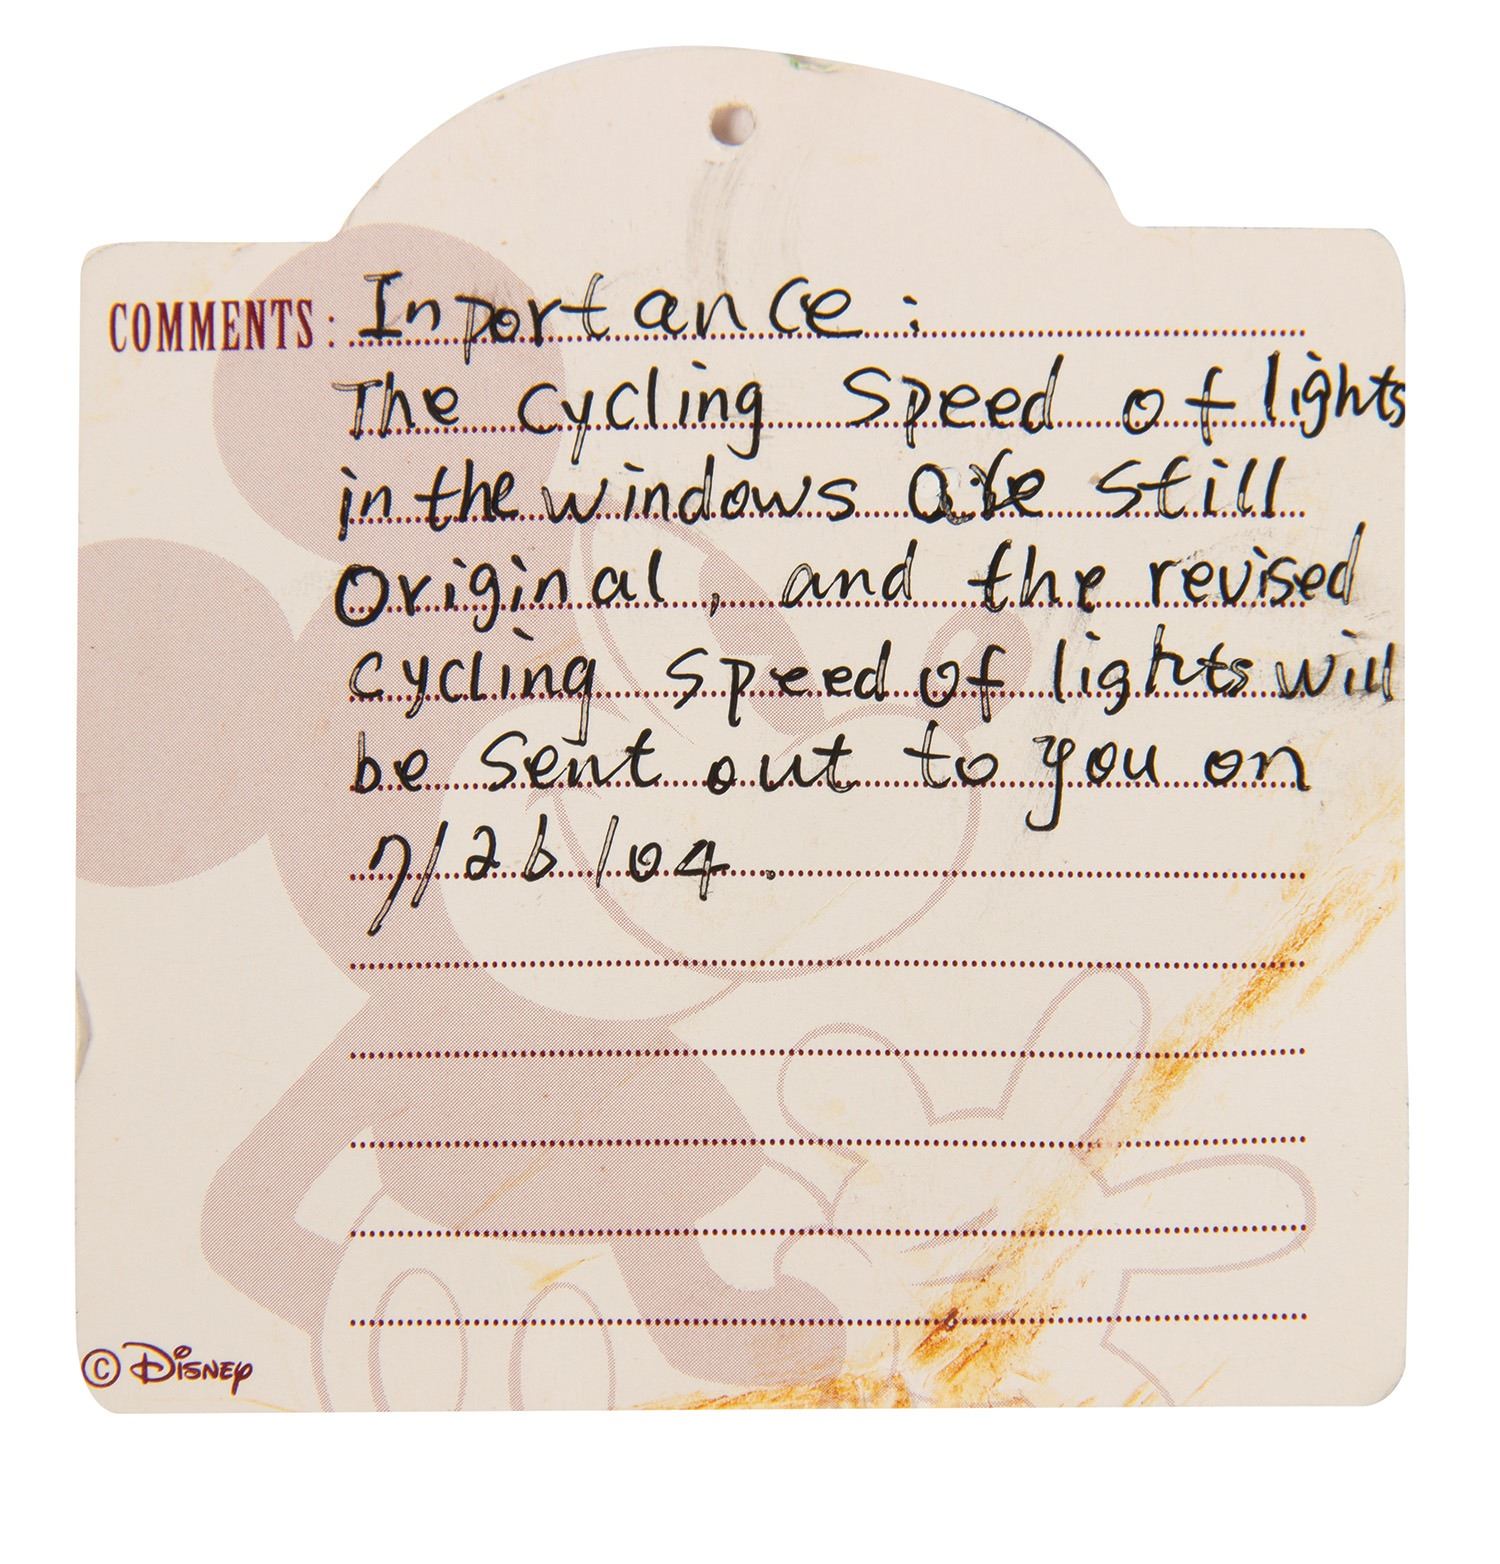 COMMENTS: Inportance:
The cycling speed of lights
in the windows are still
Original, and the revised
cycling speed of lights will
be sent out to you on
7/26/04.
© Disney